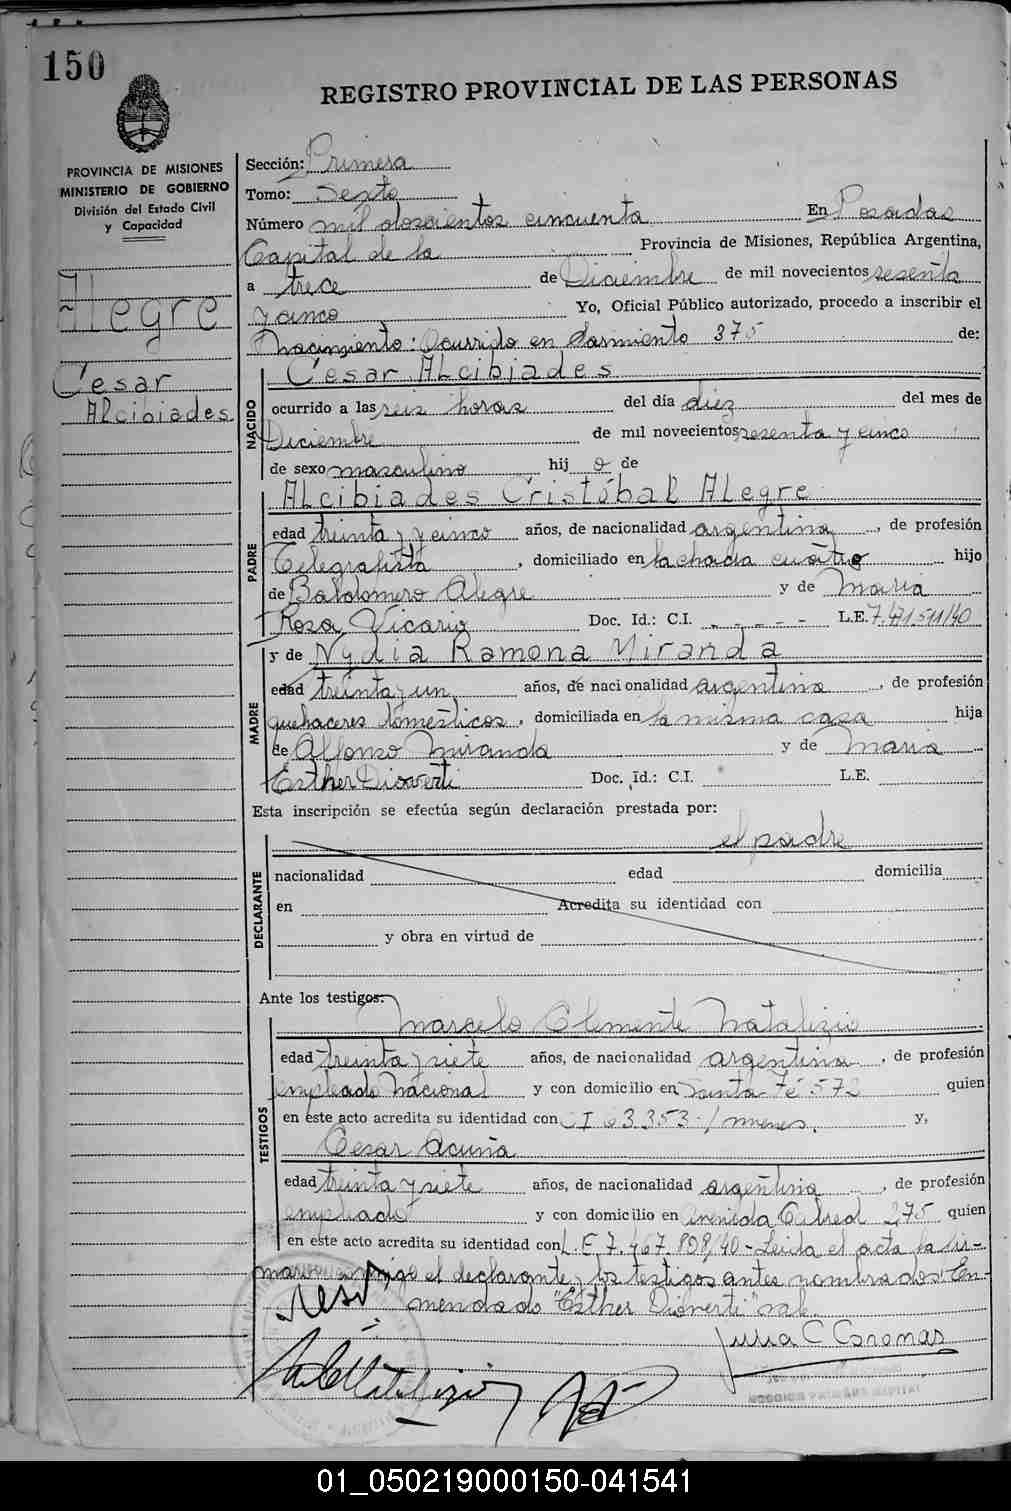 150
REGISTRO PROVINCIAL DE LAS PERSONAS
PROVINCIA DE MISIONES
MINISTERIO DE GOBIERNO
División del Estado Civil
y Capacidad
Alegre
Cesar
Alcibiades
Sección: Primera
Tomo: Sexto
Número mil doscientos cincuenta En Posadas
Capital de la Provincia de Misiones, República Argentina,
a trece de Diciembre de mil novecientos sesenta
y cinco Yo, Oficial Público autorizado, procedo a inscribir el
Nacimiento: Ocurrido en Sarmiento 375 de:
NACIDO
Cesar Alcibiades
ocurrido a las seis horas del día diez del mes de
Diciembre de mil novecientos sesenta y cinco
de sexo masculino hij o de
PADRE
Alcibiades Cristóbal Alegre
edad treinta y cinco años, de nacionalidad argentina, de profesión
Telegrafista, domiciliado en la chacra cuatro hijo
de Baldomero Alegre y de Maria
Rosa Vicario Doc. Id.: C.I. - - - - L.E. 7.471.511/40
MADRE
y de Nydia Ramona Miranda
edad treinta y un años, de nacionalidad argentina, de profesión
quehaceres domésticos, domiciliada en la misma casa hija
de Alfonso Miranda y de Maria
Esther Dioverti Doc. Id.: C.I. L.E.
Esta inscripción se efectúa según declaración prestada por:
DECLARANTE
el padre
nacionalidad edad domicilia
en Acredita su identidad con
y obra en virtud de
Ante los testigos:
TESTIGOS
Marcelo Clemente Natalizio
edad treinta y siete años, de nacionalidad argentina, de profesión
empleado nacional y con domicilio en Santa Fé 572 quien
en este acto acredita su identidad con CI 63.353 - Misnes. y,
Cesar Acuña
edad treinta y siete años, de nacionalidad argentina, de profesión
empleado y con domicilio en Avenida Cabred 275 quien
en este acto acredita su identidad con L.E. 7.467.808/40 - Leida el acta la fir-
maron conmigo el declarante y los testigos antes nombrados: En-
mendado "Esther Dioverti" vale.
Julia C Coromas
01_050219000150-041541